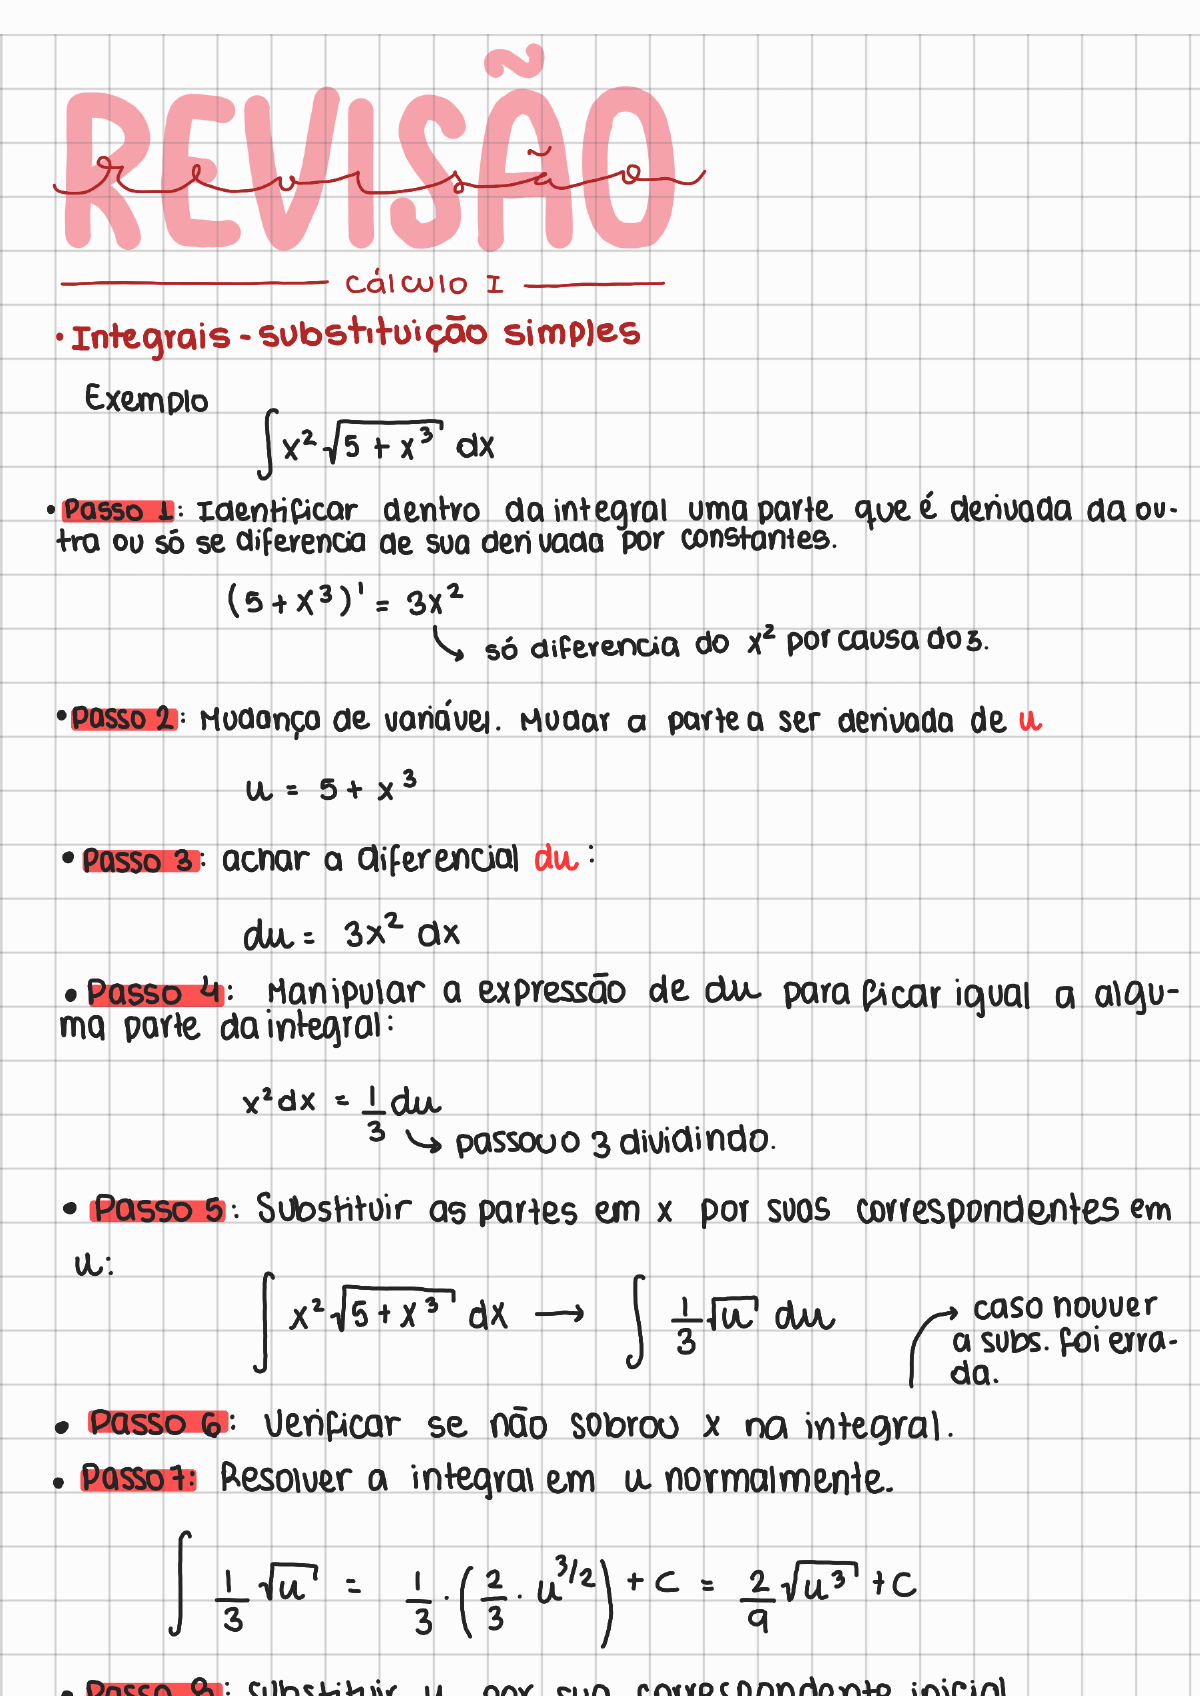 REVISÃO
revisão
cálculo I
• Integrais - substituição simples
Exemplo
∫ x² √(5 + x³) dx
• Passo 1: Identificar dentro da integral uma parte que é derivada da ou-
tra ou só se diferencia de sua derivada por constantes.
(5 + x³)' = 3x²
só diferencia do x² por causa do 3.
• Passo 2: Mudança de variável. Mudar a parte a ser derivada de u
u = 5 + x³
• Passo 3: achar a diferencial du:
du = 3x² dx
• Passo 4: Manipular a expressão de du para ficar igual a algu-
ma parte da integral:
x² dx = 1/3 du
passou o 3 dividindo.
• Passo 5: Substituir as partes em x por suas correspondentes em
u:
∫ x² √(5 + x³) dx → ∫ 1/3 √u du
caso houver
a subs. foi erra-
da.
• Passo 6: Verificar se não sobrou x na integral.
• Passo 7: Resolver a integral em u normalmente.
∫ 1/3 √u = 1/3 · (2/3 · u^3/2) + C = 2/9 √u³ + C
• Passo 8: substituir u por sua correspondente inicial